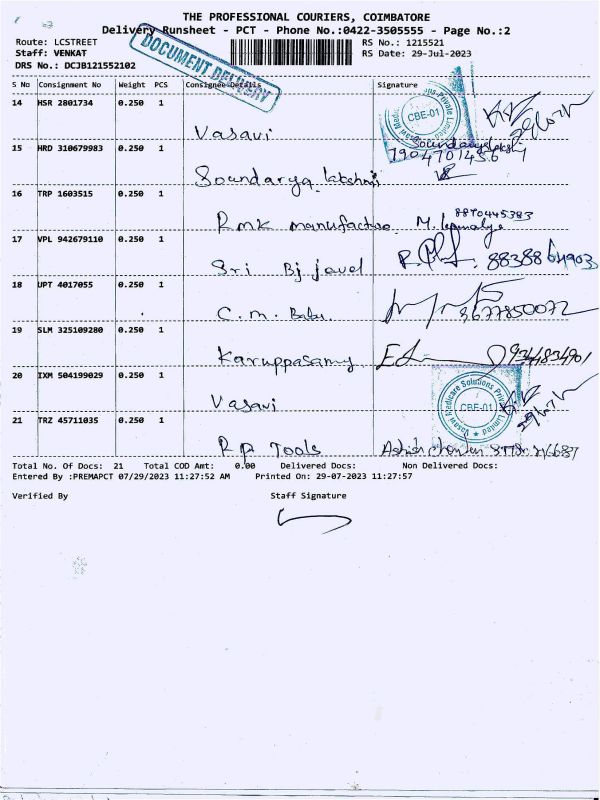 THE PROFESSIONAL COURIERS, COIMBATORE
Delivery Runsheet - PCT - Phone No.:0422-3505555 - Page No.:2
Route: LCSTREET RS No.: 1215521
Staff: VENKAT RS Date: 29-Jul-2023
DRS No.: DCJB121552102
DOCUMENT DELIVERY
S No Consignment No Weight PCS Consignee Details Signature
14 HSR 2801734 0.250 1
Vasavi
CBE-01
15 HRD 310679983 0.250 1
Soundarya lakshmi
16 TRP 1603515 0.250 1
Rmk manufactre
8870445393
17 VPL 942679110 0.250 1
Sri Bj javel
18 UPT 4017055 0.250 1
C. m. Babu
19 SLM 325109280 0.250 1
Karuppasamy
20 IXM 504199029 0.250 1
Vasavi
Vasavi Medicare Solutions Private Limited
CBE-01
21 TRZ 45711035 0.250 1
R P Tools
Total No. Of Docs: 21 Total COD Amt: 0.00 Delivered Docs: Non Delivered Docs:
Entered By :PREMAPCT 07/29/2023 11:27:52 AM Printed On: 29-07-2023 11:27:57
Verified By Staff Signature